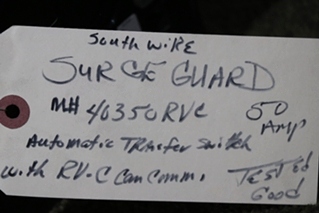 South Wire
SURGE GUARD
M# 40350RVC 50 Amp
Automatic TRAnsfer Switch
with RV-C Can Comm. TESTed Good